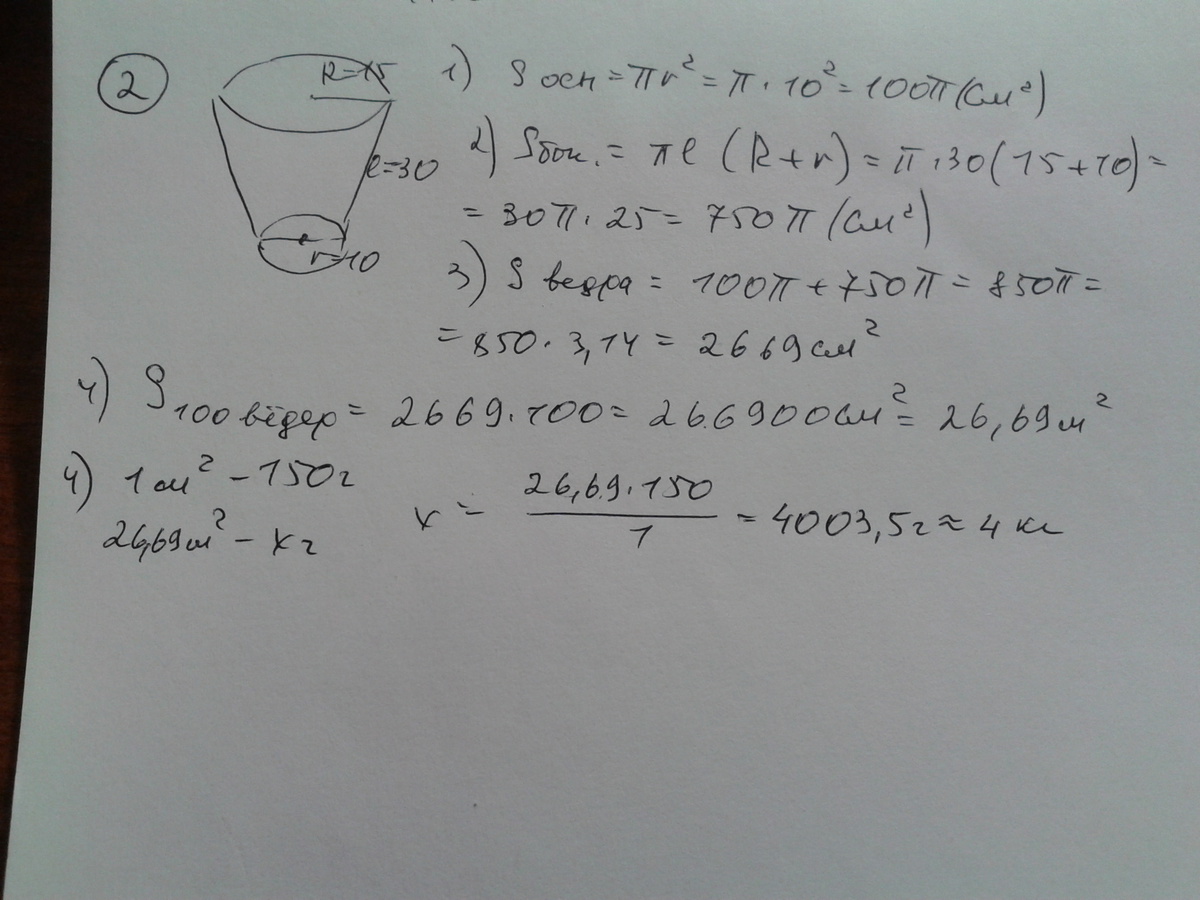 2
R=15
l=30
r=10
1) S осн = πr² = π · 10² = 100π (см²)
2) S бок. = πl (R+r) = π·30(15+10) =
= 30π · 25 = 750π (см²)
3) S ведра = 100π + 750π = 850π =
= 850 · 3,14 = 2669 см²
4) S 100 вёдер = 2669·100 = 266900 см² = 26,69 м²
4) 1 см² – 150 г
26,69 м² – x г
x = 26,69·150 / 1 = 4003,5 г ≈ 4 кг